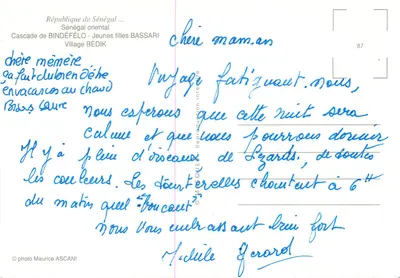 République du Sénégal ...
Sénégal oriental
Cascade de BINDÉFÉLO - Jeunes filles BASSARI
Village BÉDIK
87
chère mémère
ça fait du bien d'être
en vacances au chaud
Bisous Laure
Chère maman
Voyage fatiguant. nous,
nous esperons que cette nuit sera
calme et que nous pourrons dormir
Il y a plein d'oiseaux de Lezards, de toutes
les couleurs. Les tourterelles chantent à 6H
du matin quel "boucant".
nous vous embrassont bien fort
Gerard
© photo Maurice ASCANI